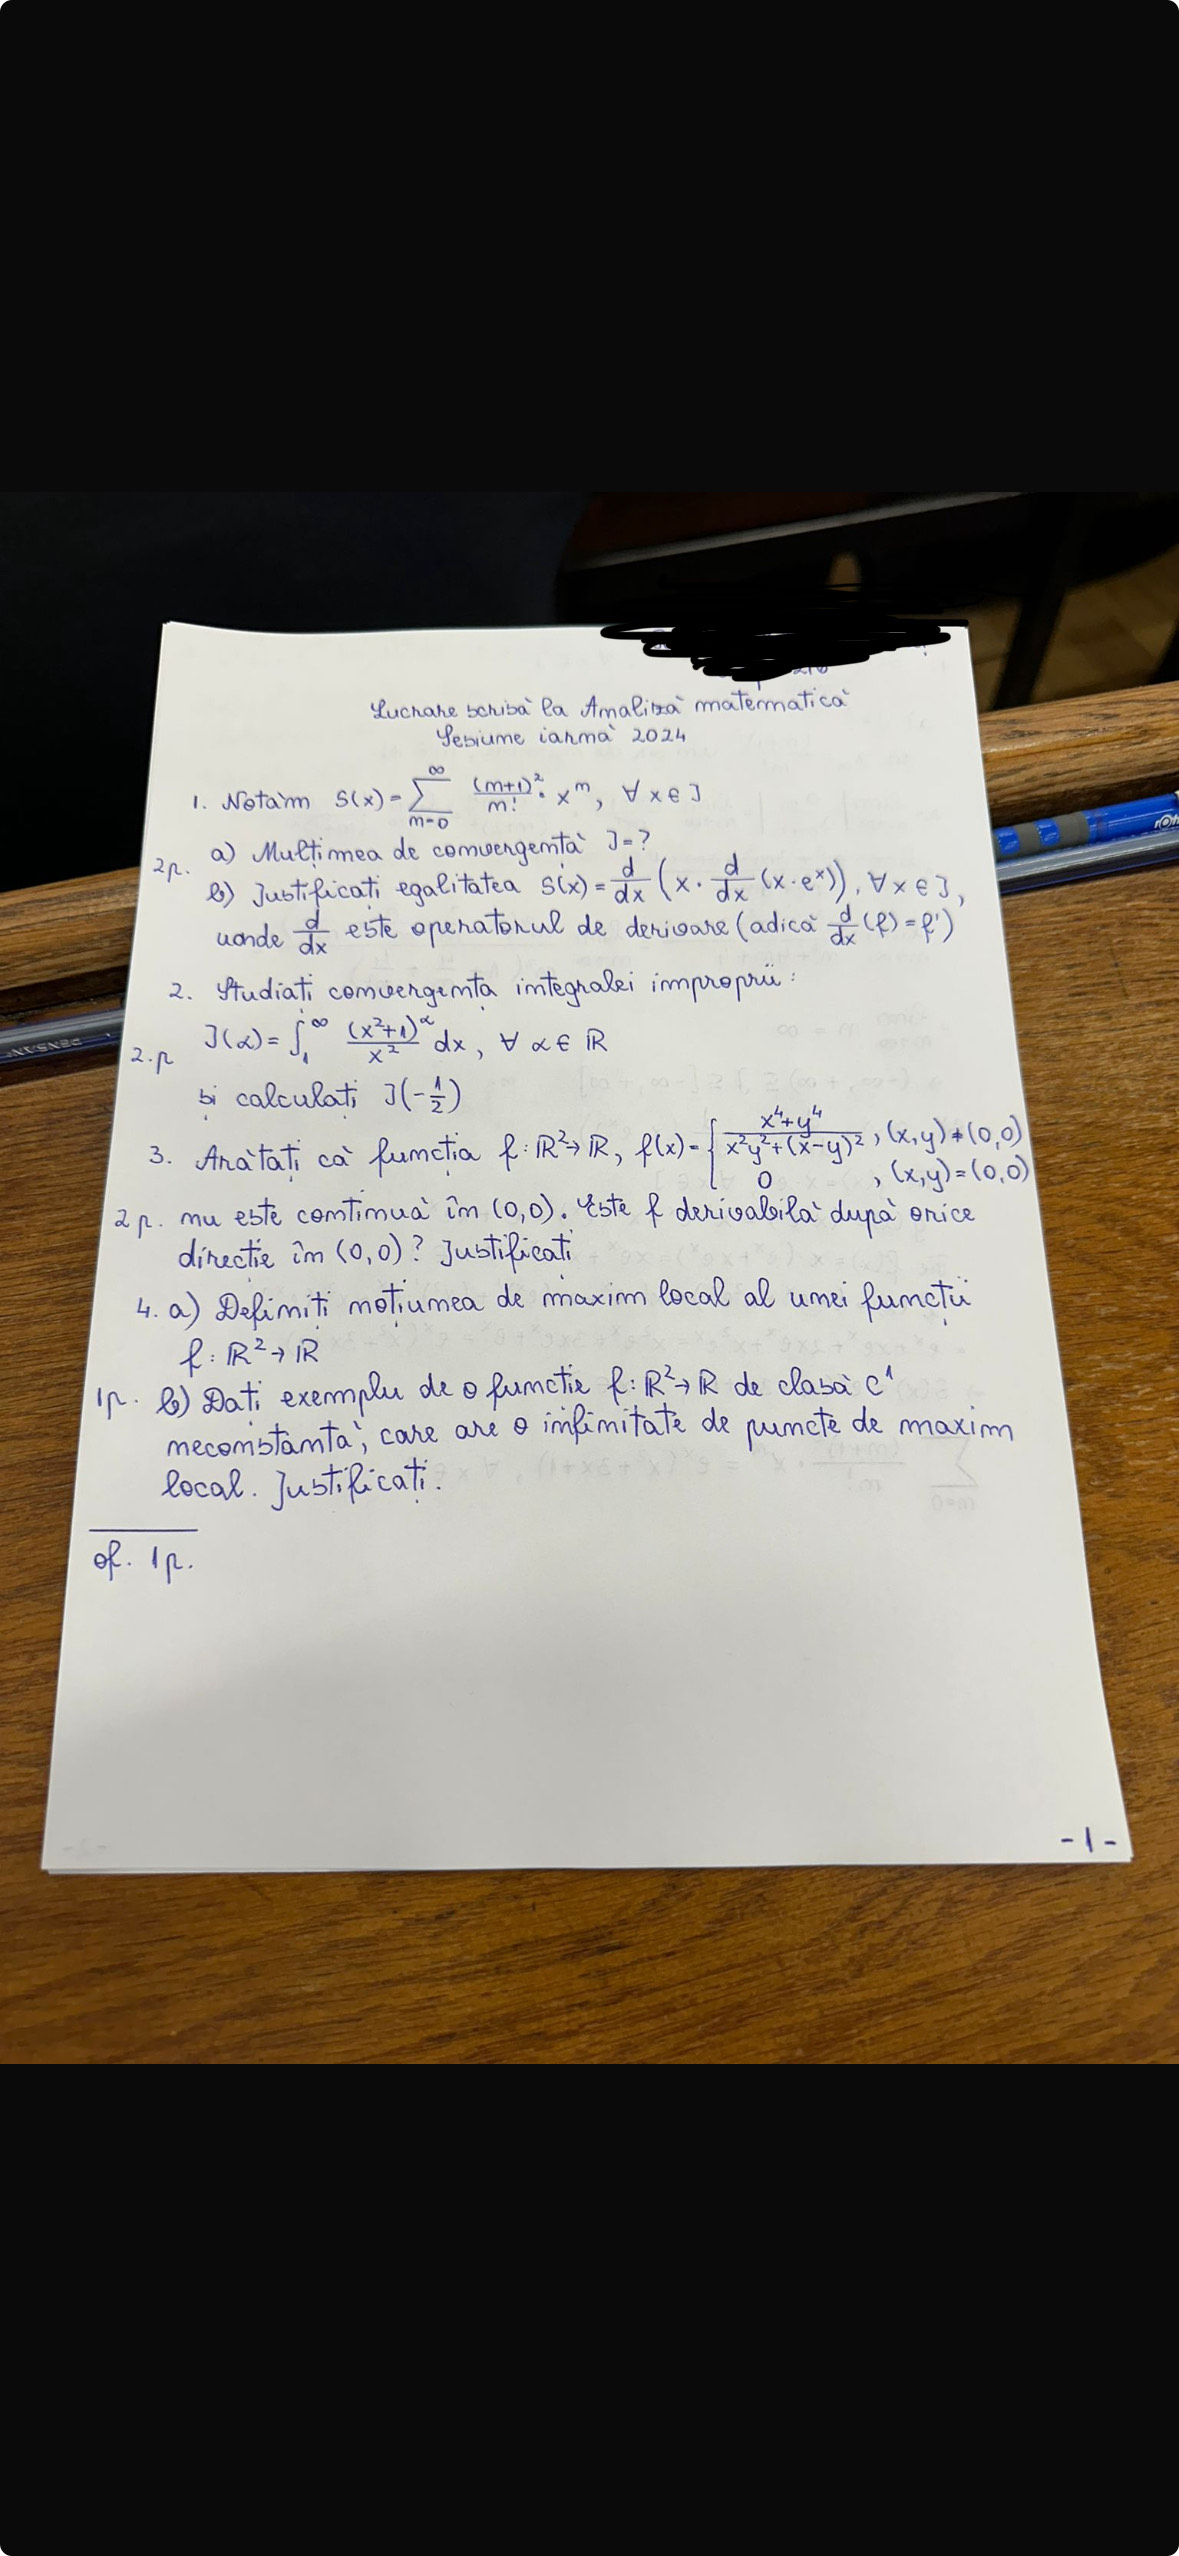 Lucrare scrisă la Analiză matematică
Sesiune iarnă 2024
1. Notăm S(x)=∑_{n=0}^{∞} (n+1)²/n! · xⁿ, ∀ x∈J
a) Mulțimea de convergență J=?
2p.
b) Justificați egalitatea S(x)= d/dx (x · d/dx (x·eˣ)), ∀ x∈J,
unde d/dx este operatorul de derivare (adică d/dx (f)=f')
2. Studiați convergența integralei improprii:
2.p J(α)=∫₁^∞ (x²+1)^α/x² dx, ∀ α∈ℝ
și calculați J(-1/2)
3. Arătați că funcția f:ℝ²→ℝ, f(x)={ (x⁴+y⁴)/(x²y²+(x-y)²), (x,y)≠(0,0)
0, (x,y)=(0,0)
2p. nu este continuă în (0,0). Este f derivabilă după orice
direcție în (0,0)? Justificați
4. a) Definiți noțiunea de maxim local al unei funcții
f:ℝ²→ℝ
1p. b) Dați exemplu de o funcție f:ℝ²→ℝ de clasă C¹
neconstantă, care are o infinitate de puncte de maxim
local. Justificați.
of. 1p.
-1-
PENSAN